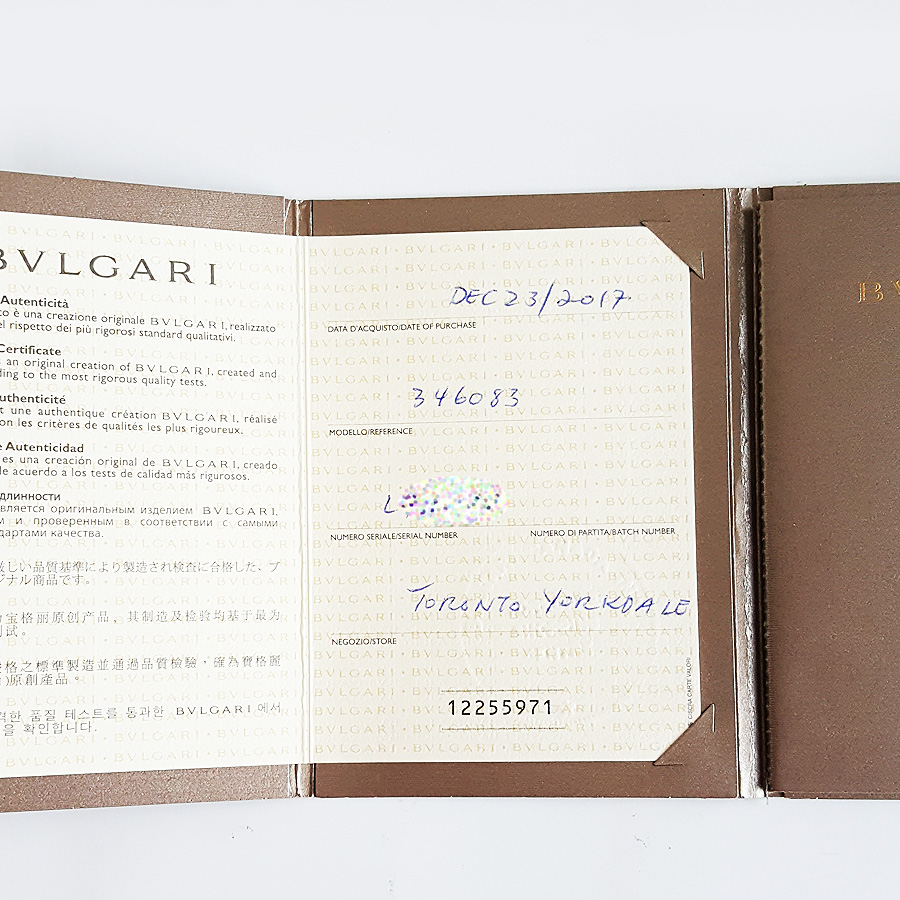 BVLGARI
Autenticità
to è una creazione originale BVLGARI, realizzato
el rispetto dei più rigorosi standard qualitativi.
Certificate
an original creation of BVLGARI, created and
ding to the most rigorous quality tests.
uthenticité
t une authentique création BVLGARI, réalisé
on les critères de qualités les plus rigoureux.
e Autenticidad
es una creación original de BVLGARI, creado
de acuerdo a los tests de calidad más rigurosos.
длинности
вляется оригинальным изделием BVLGARI,
м и проверенным в соответствии с самыми
дартами качества.
厳しい品質基準により製造され検査に合格した、ブ
ジナル商品です。
宝格丽原创产品，其制造及检验均基于最为
试。
格之標準製造並通過品質檢驗，確為寶格麗
)原創產品。
격한 품질 테스트를 통과한 BVLGARI에서
을 확인합니다.
DEC 23/2017
DATA D'ACQUISTO/DATE OF PURCHASE
346083
MODELLO/REFERENCE
L
NUMERO SERIALE/SERIAL NUMBER NUMERO DI PARTITA/BATCH NUMBER
TORONTO YORKDALE
NEGOZIO/STORE
12255971
CARTE VALORI
BV